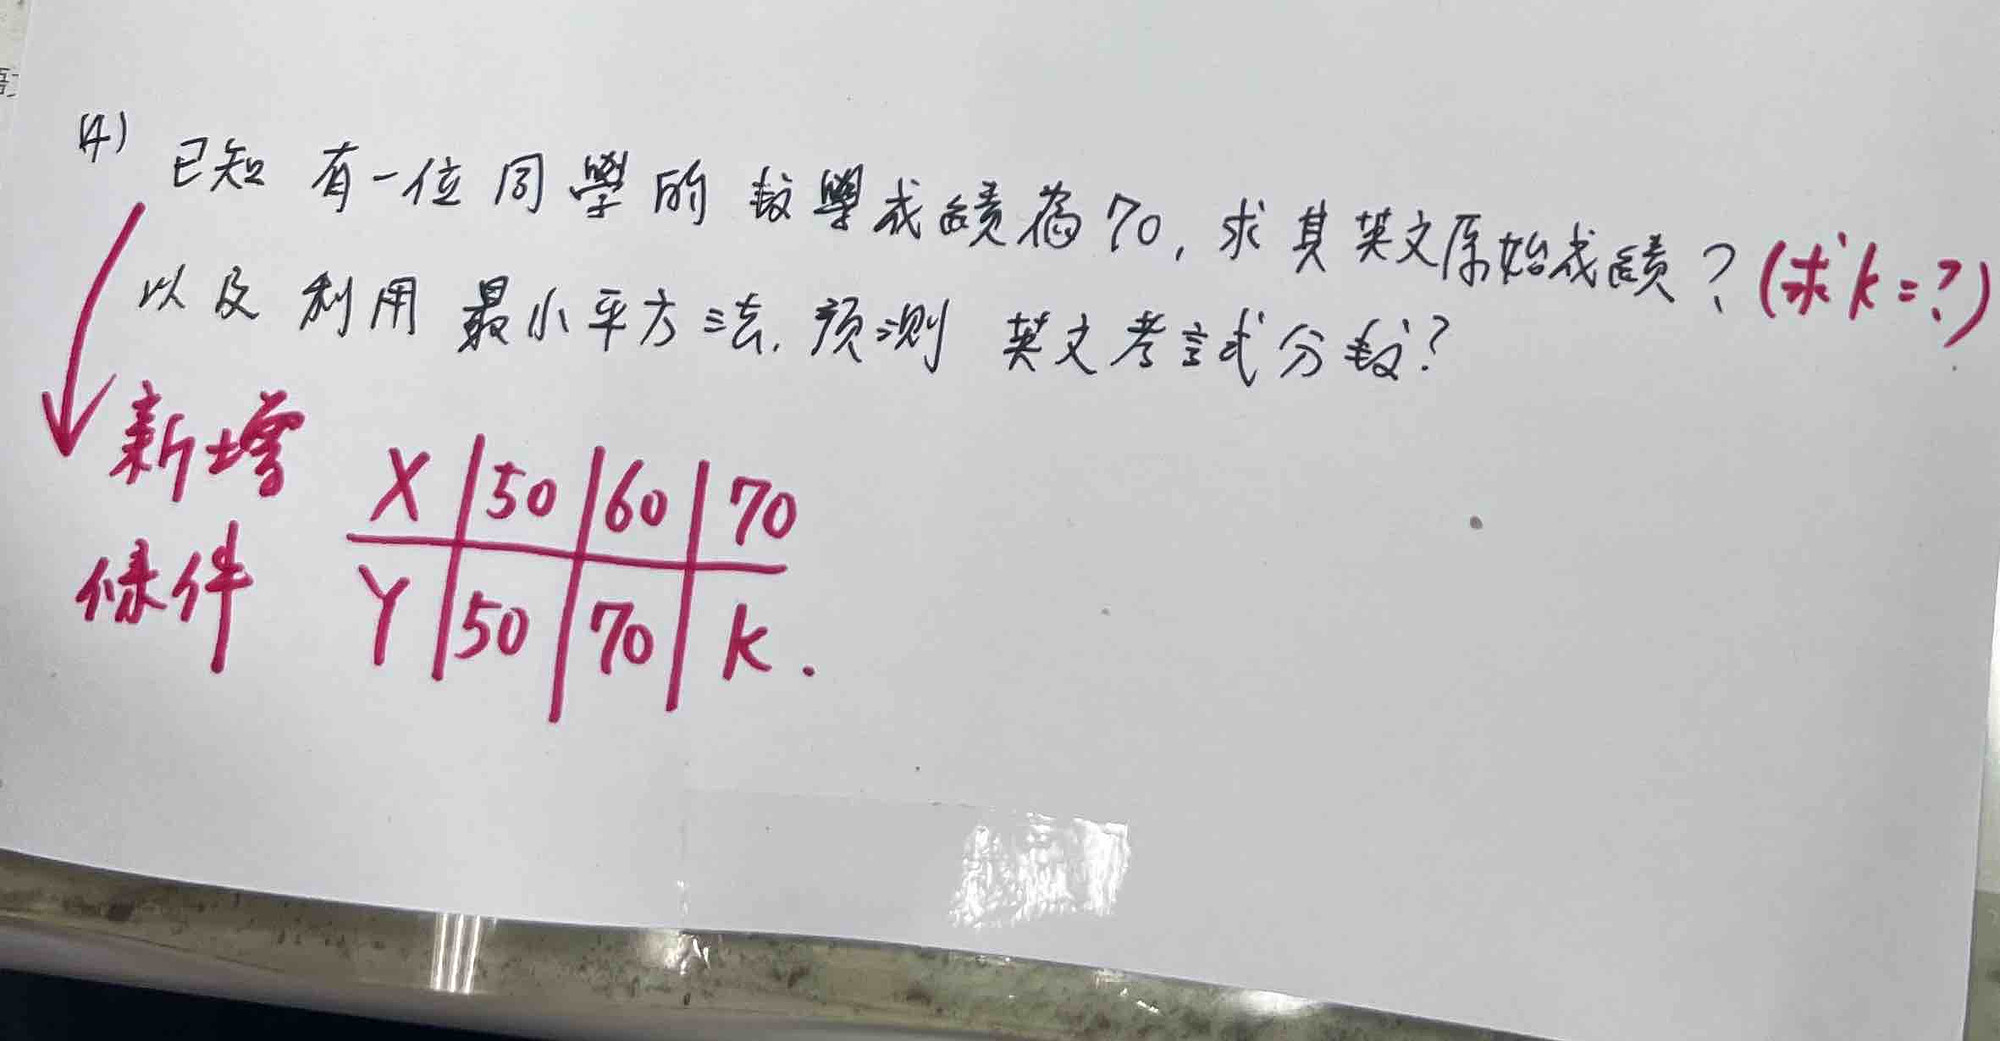 (4) 已知 有一位同學的數學成績為70, 求其英文原始成績? (求k=?)
以及利用最小平方法, 預測 英文考試分數?
新增
條件
X | 50 | 60 | 70
Y | 50 | 70 | k.